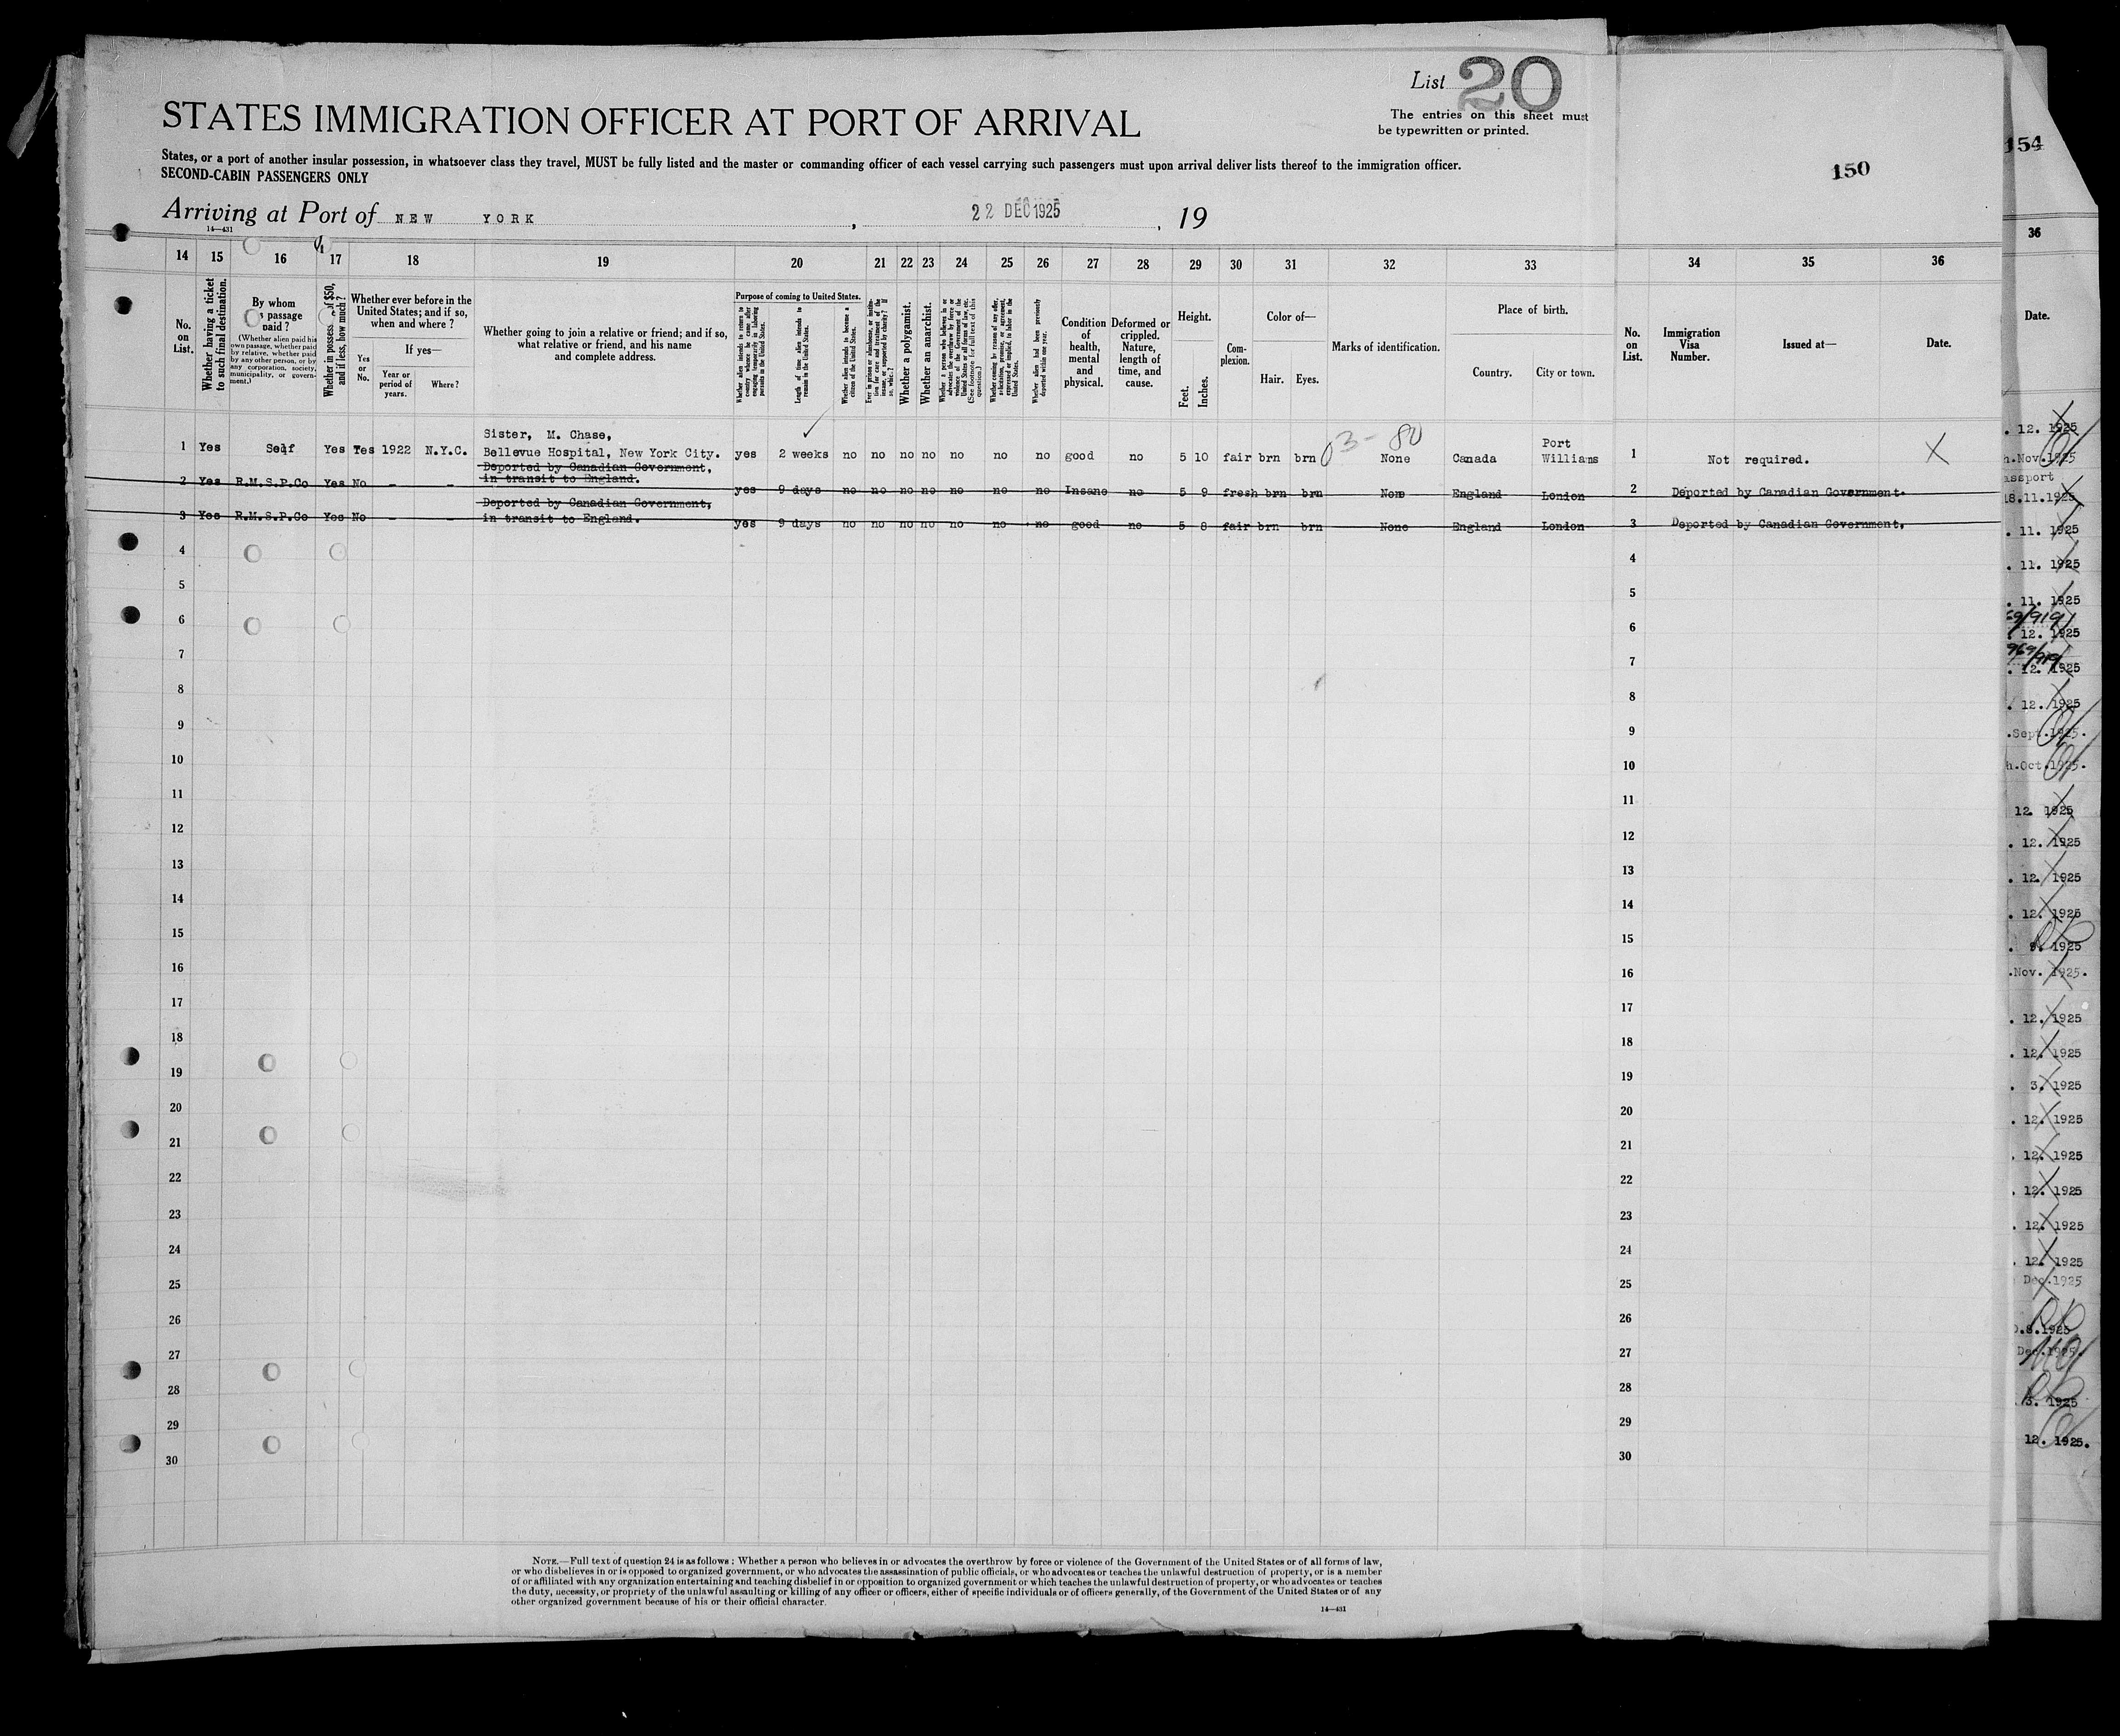 List 20
The entries on this sheet must
be typewritten or printed.
STATES IMMIGRATION OFFICER AT PORT OF ARRIVAL
150
154
States, or a port of another insular possession, in whatsoever class they travel, MUST be fully listed and the master or commanding officer of each vessel carrying such passengers must upon arrival deliver lists thereof to the immigration officer.
SECOND-CABIN PASSENGERS ONLY
Arriving at Port of NEW YORK, 22 DEC 1925, 19
14—431
14 15 16 17 18 19 20 21 22 23 24 25 26 27 28 29 30 31 32 33 34 35 36
36
No. on List.
Whether having a ticket to such final destination.
By whom passage paid?
(Whether alien paid his own passage, whether paid by relative, whether paid by any other person, or by any corporation, society, municipality, or government.)
Whether in possess of $50, and if less, how much?
Whether ever before in the United States; and if so, when and where?
Yes or No.
If yes—
Year or period of years.
Where?
Whether going to join a relative or friend; and if so, what relative or friend, and his name and complete address.
Purpose of coming to United States.
Whether alien intends to return to country whence he came after engaging temporarily in laboring pursuits in the United States.
Length of time alien intends to remain in the United States.
Whether alien intends to become a citizen of the United States.
Ever in prison or almshouse, or institution for care and treatment of the insane, or supported by charity? If so, which?
Whether a polygamist.
Whether an anarchist.
Whether a person who believes in or advocates the overthrow by force or violence of the Government of the United States or all forms of law, etc. (See footnote for full text of this question.)
Whether coming by reason of any offer, solicitation, promise, or agreement, expressed or implied, to labor in the United States.
Whether alien had been previously deported within one year.
Condition of health, mental and physical.
Deformed or crippled. Nature, length of time, and cause.
Height.
Feet. Inches.
Complexion.
Color of—
Hair. Eyes.
Marks of identification.
Place of birth.
Country. City or town.
No. on List.
Immigration Visa Number.
Issued at—
Date.
Date.
1 Yes Self Yes Tes 1922 N.Y.C. Sister, M. Chase,
Bellevue Hospital, New York City. yes 2 weeks no no no no no no no good no 5 10 fair brn brn 03- 80 None Canada Port Williams 1 Not required. X
2 Yes R.M.S.P.Co Yes No - - Deported by Canadian Government,
in transit to England. yes 9 days no no no no no no no Insane no 5 9 fresh brn brn None England London 2 Deported by Canadian Government.
3 Yes R.M.S.P.Co Yes No - - Deported by Canadian Government,
in transit to England. yes 9 days no no no no no no no good no 5 8 fair brn brn None England London 3 Deported by Canadian Government.
4 4
5 5
6 6
7 7
8 8
9 9
10 10
11 11
12 12
13 13
14 14
15 15
16 16
17 17
18 18
19 19
20 20
21 21
22 22
23 23
24 24
25 25
26 26
27 27
28 28
29 29
30 30
. 12. 1925
h.Nov.1925
assport
18.11.1925
. 11. 1925
. 11. 1925
. 11. 1925
. 12. 1925
. 12. 1925
. 12. 1925
.Sept.1925.
h.Oct.1925.
12. 1925
. 12. 1925
. 12. 1925
. 12. 1925
. 9. 1925
.Nov. 1925.
. 12. 1925
. 12. 1925
. 3. 1925
. 12. 1925
. 12. 1925
. 12. 1925
. 12. 1925
. 12. 1925
Dec.1925
.8.1925
Dec.1925.
3. 1925
12. 1925.
NOTE.—Full text of question 24 is as follows: Whether a person who believes in or advocates the overthrow by force or violence of the Government of the United States or of all forms of law,
or who disbelieves in or is opposed to organized government, or who advocates the assassination of public officials, or who advocates or teaches the unlawful destruction of property, or is a member
of or affiliated with any organization entertaining and teaching disbelief in or opposition to organized government or which teaches the unlawful destruction of property, or who advocates or teaches
the duty, necessity, or propriety of the unlawful assaulting or killing of any officer or officers, either of specific individuals or of officers generally, of the Government of the United States or of any
other organized government because of his or their official character.
14—431